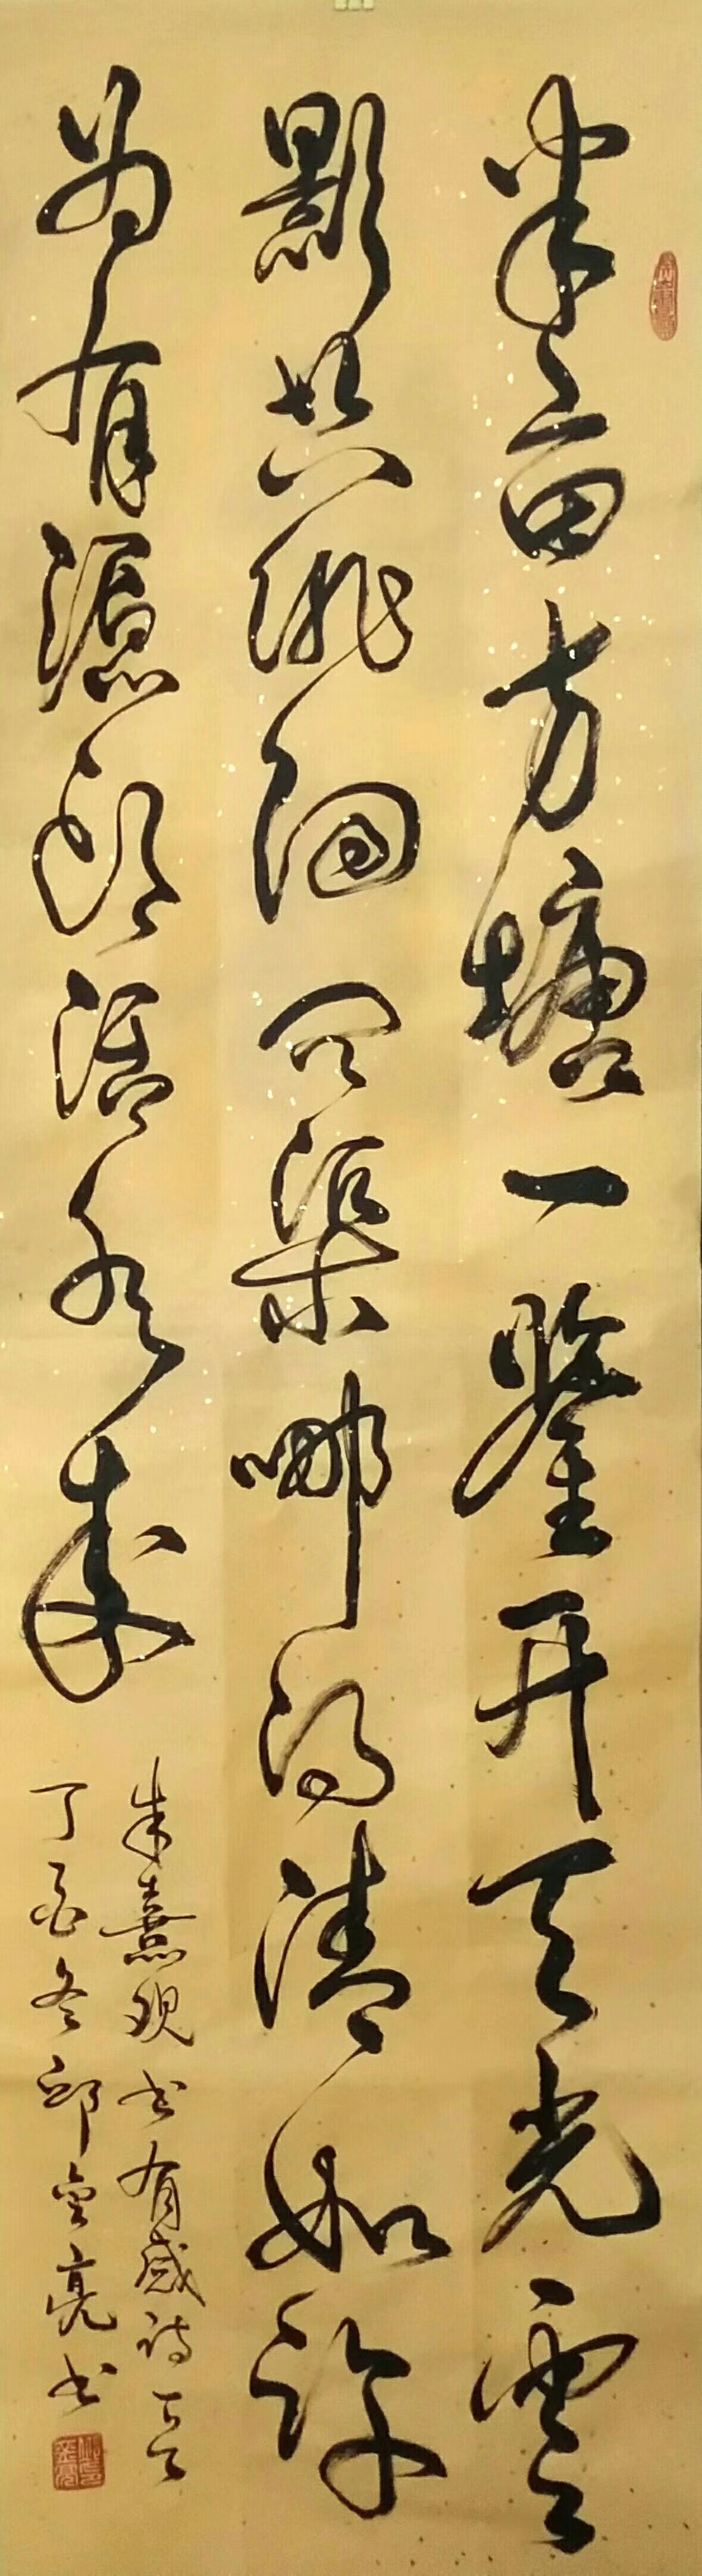 半亩方塘一鉴开天光雲
影共徘徊问渠哪得清如许
为有源头活水来
朱熹观书有感诗一首
丁酉冬邱金亮书